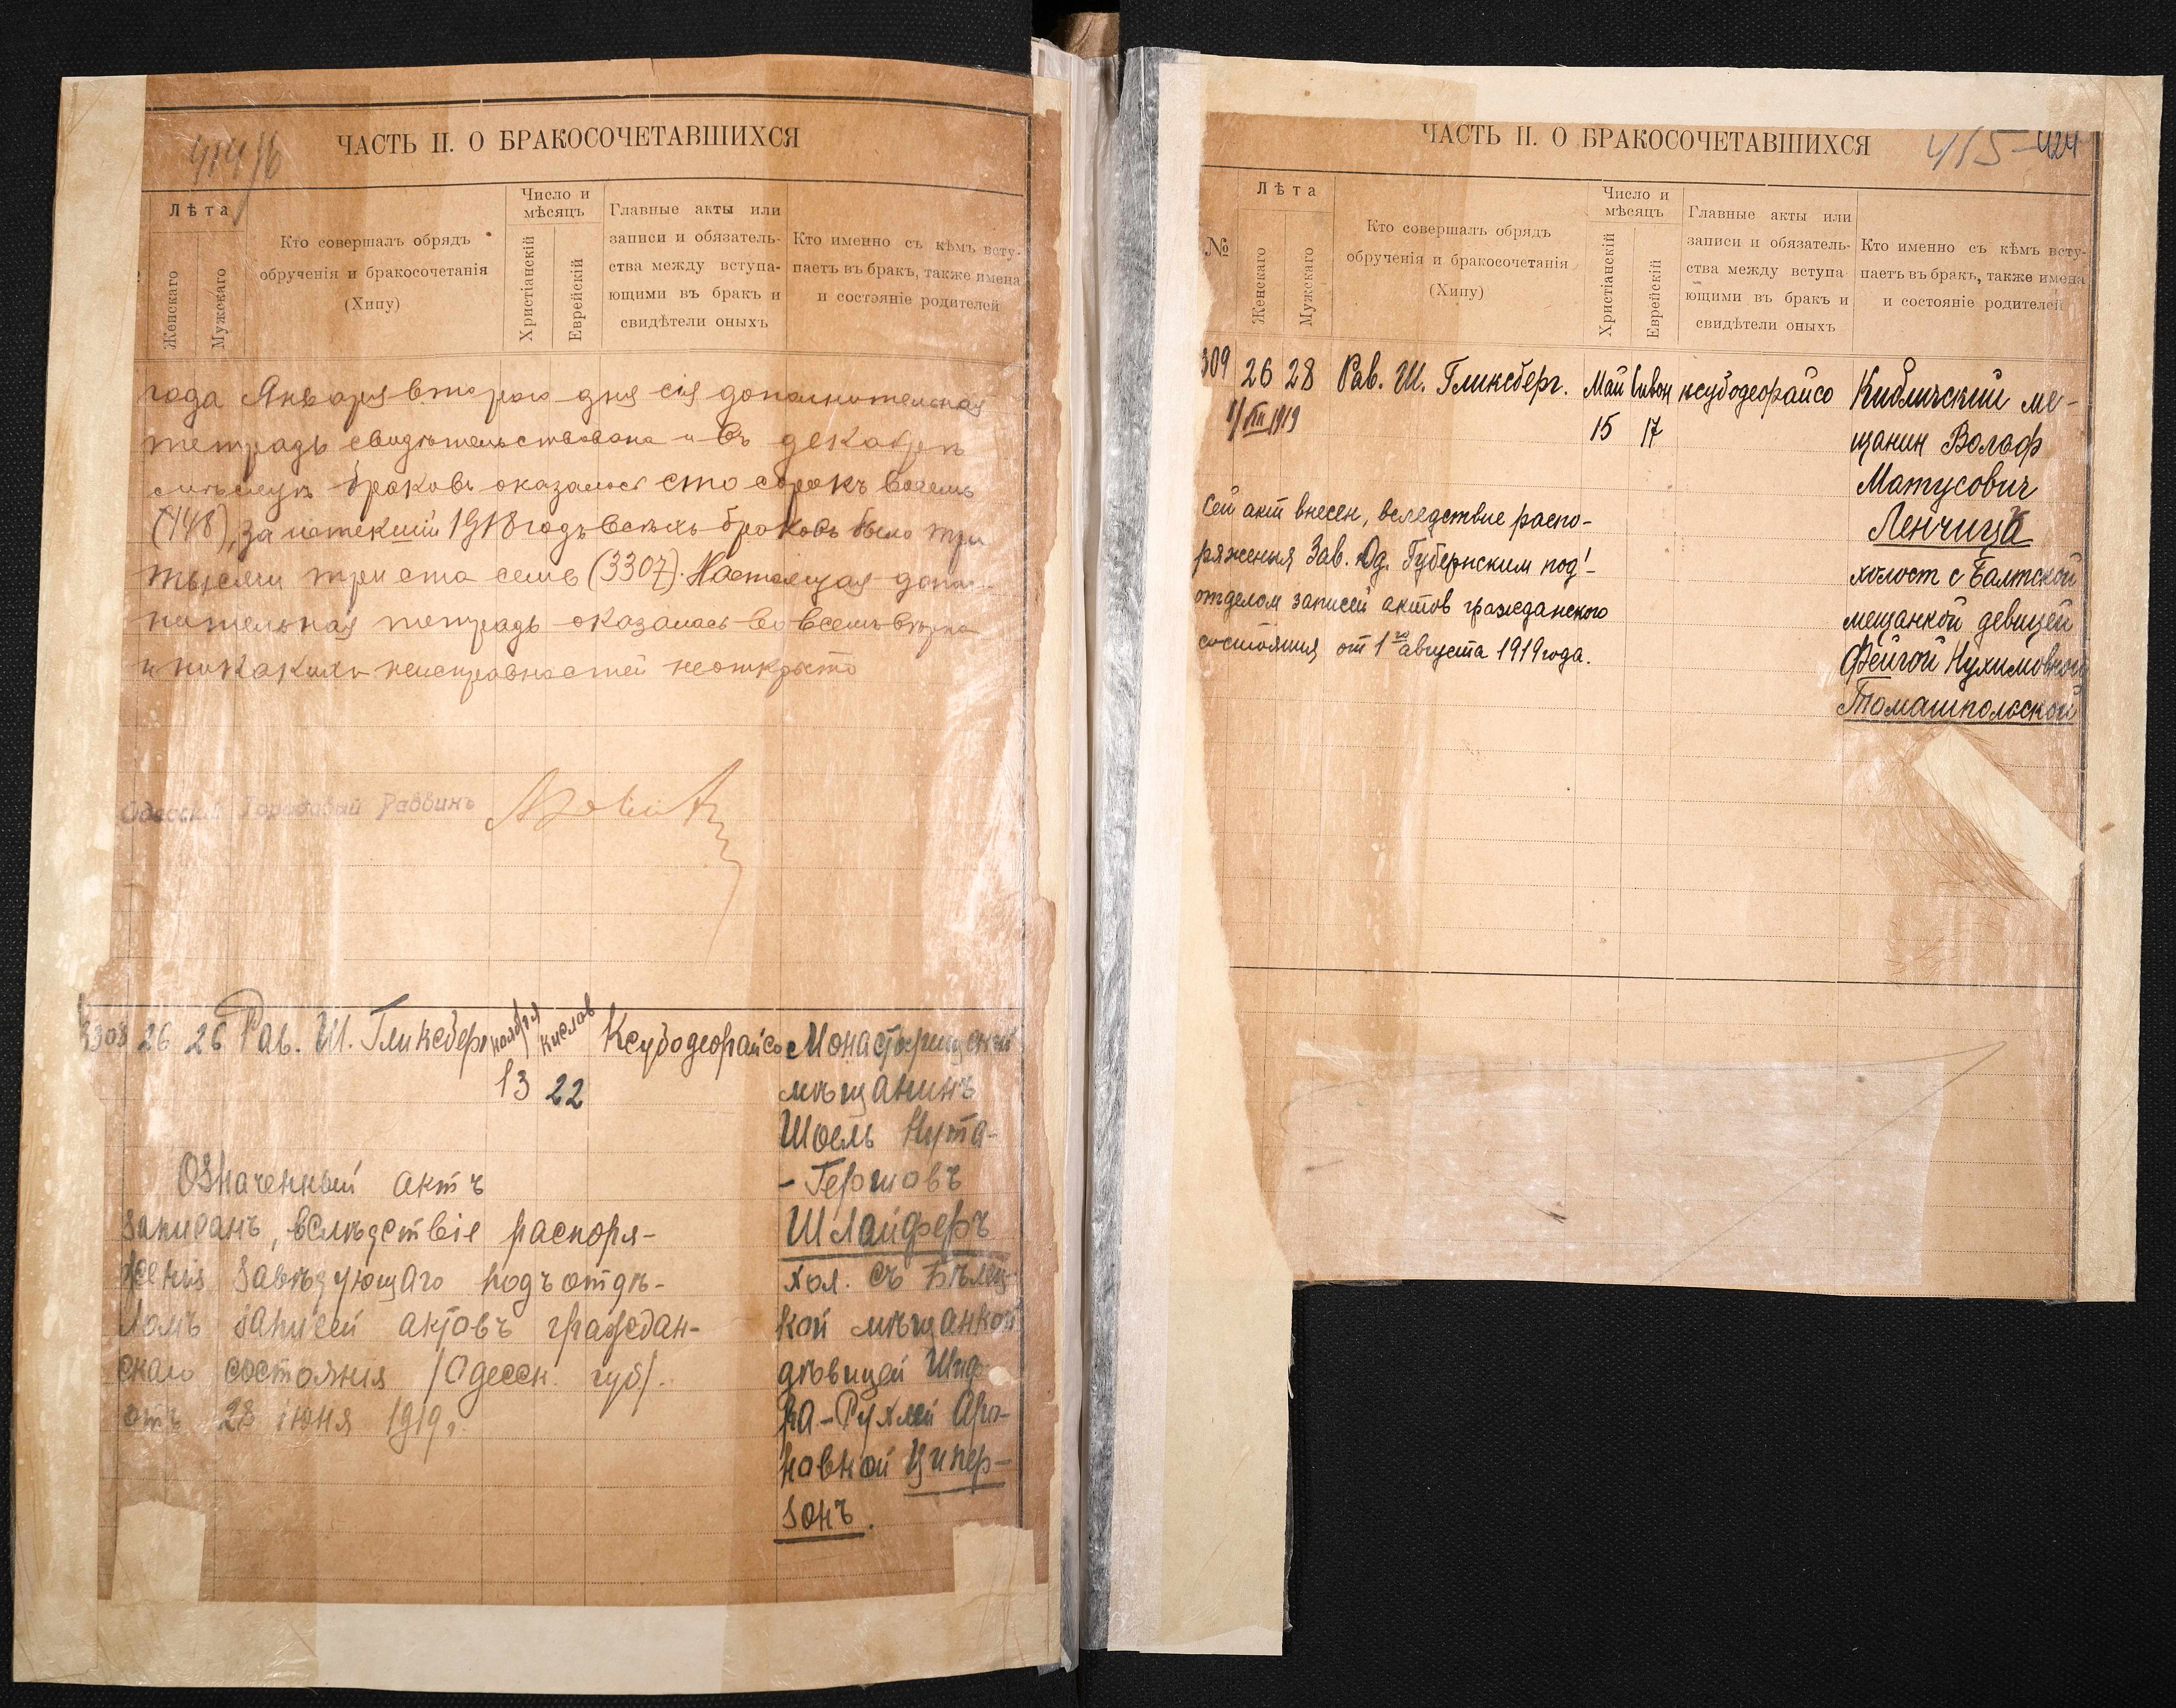 414/б
ЧАСТЬ II. О БРАКОСОЧЕТАВШИХСЯ
Лѣта
Женскаго
Мужскаго
Кто совершалъ обрядъ
обрученія и бракосочетанія
(Хипу)
Число и
мѣсяцъ
Христіанскій
Еврейскій
Главные акты или
записи и обязатель-
ства между вступа-
ющими въ бракъ и
свидѣтели оныхъ
Кто именно съ кѣмъ всту-
паетъ въ бракъ, также имена
и состояніе родителей
года Января второго дня сія дополнительная
тетрадь свидѣтельствована и въ декабрѣ
мѣсяцѣ браковъ оказалось сто сорокъ восемь
(148), за истекшій 1918 годъ всѣхъ браковъ было три
тысячи триста семь (3307). Настоящая допол-
нительная тетрадь оказалась во всемъ вѣрна
и никакихъ неисправностей не открыто
Одесскій Городовой Раввинъ
3308 26 26 Рав. Ш. Гликсберг ноября кислев Ксубодеорайсо Монастырищенскій
13 22 мѣщанинъ
Шоель Нута-
-Гершовъ
Шлайферъ
хол. съ Бѣлец-
кой мѣщанкой
дѣвицей Шиф-
ра-Рухлей Аро-
новной Ципер-
зонъ.
Означенный актъ
записанъ, вслѣдствіе распоря-
женія Завѣдующаго подъотдѣ-
ломъ записей актовъ граждан-
скаго состоянія (Одесск. губ).
отъ 28 іюня 1919 г.
ЧАСТЬ II. О БРАКОСОЧЕТАВШИХСЯ
415 424
№
Лѣта
Женскаго
Мужскаго
Кто совершалъ обрядъ
обрученія и бракосочетанія
(Хипу)
Число и
мѣсяцъ
Христіанскій
Еврейскій
Главные акты или
записи и обязатель-
ства между вступа-
ющими въ бракъ и
свидѣтели оныхъ
Кто именно съ кѣмъ всту-
паетъ въ бракъ, также имена
и состояніе родителей
309 26 28 Рав. Ш. Гликсберг. Май Сивон ксубодеорайсо Кибличский ме-
1/VIII 1919 15 17 щанин Вольф
Матусович
Ленчица
холост с Балтской
мещанкой девицей
Фейгой Нухимовной
Томашпольской
Сей акт внесен, вследствие распо-
ряжения Зав. Од. Губернским под'-
отделом записей актов гражданского
состояния от 1го августа 1919 года.